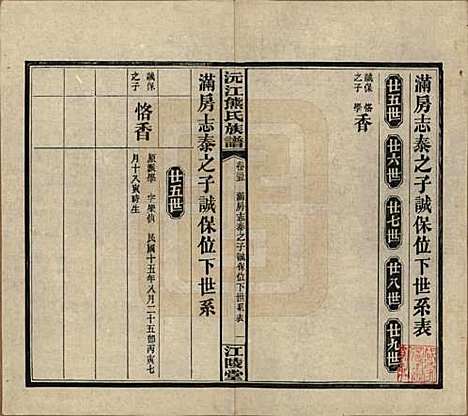 滿房志泰之子誠保位下世系表
廿五世 廿六世 廿七世 廿八世 廿九世
誠保之子 恪學 香
沅江熊氏族譜 卷 滿房志泰之子誠保位下世系表 一 江陵堂
滿房志泰之子誠保位下世系
廿五世
誠保之子 恪香
原派學 字樂仙 民國十五年八月二十五即丙寅七
月十八寅時生